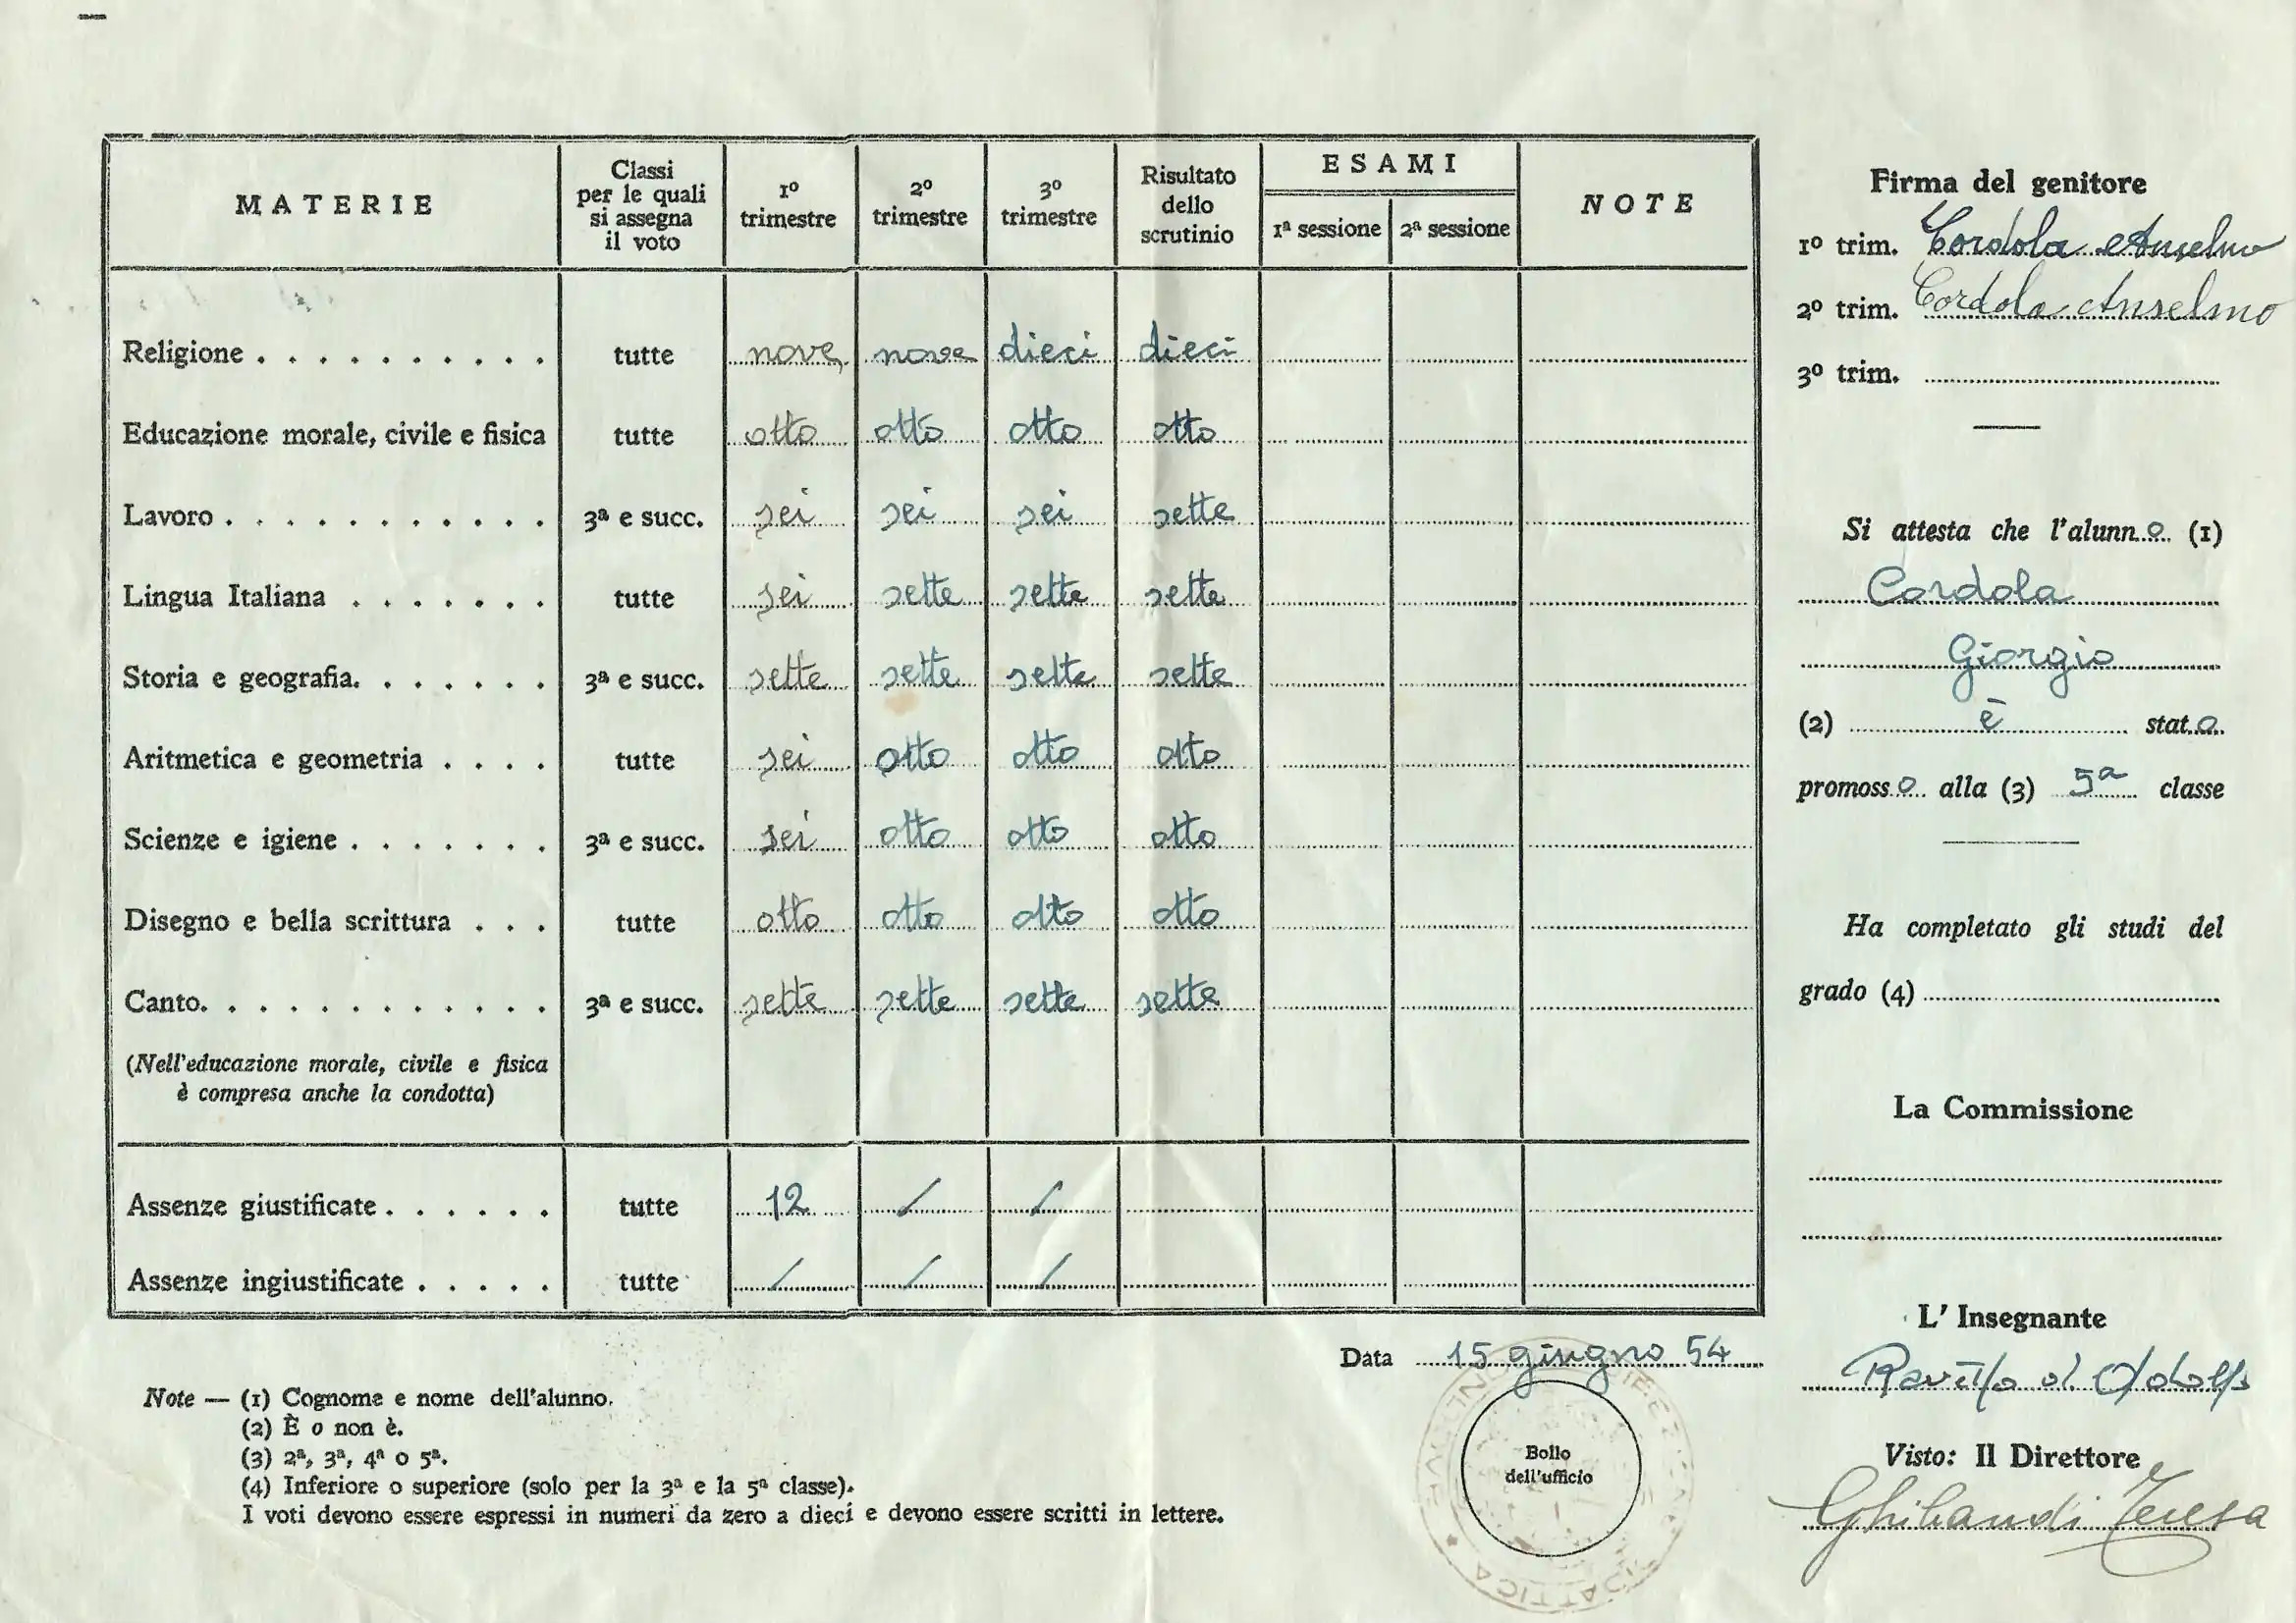 MATERIE Classi per le quali si assegna il voto 1º trimestre 2º trimestre 3º trimestre Risultato dello scrutinio ESAMI 1ª sessione 2ª sessione NOTE
Religione . . . . . . . . . . tutte nove nove dieci dieci
Educazione morale, civile e fisica tutte otto otto otto otto
Lavoro . . . . . . . . . . . 3ª e succ. sei sei sei sette
Lingua Italiana . . . . . . . tutte sei sette sette sette
Storia e geografia. . . . . . . 3ª e succ. sette sette sette sette
Aritmetica e geometria . . . . tutte sei otto otto otto
Scienze e igiene . . . . . . . 3ª e succ. sei otto otto otto
Disegno e bella scrittura . . . tutte otto otto otto otto
Canto. . . . . . . . . . . . 3ª e succ. sette sette sette sette
(Nell'educazione morale, civile e fisica
è compresa anche la condotta)
Assenze giustificate . . . . . . tutte 12 / /
Assenze ingiustificate . . . . . tutte / / /
Data 15 giugno 54
Bollo
dell'ufficio
Note — (1) Cognome e nome dell'alunno.
(2) È o non è.
(3) 2ª, 3ª, 4ª o 5ª.
(4) Inferiore o superiore (solo per la 3ª e la 5ª classe).
I voti devono essere espressi in numeri da zero a dieci e devono essere scritti in lettere.
Firma del genitore
1º trim. Cordola Anselmo
2º trim. Cordola Anselmo
3º trim.
Si attesta che l'alunno (1)
Cordola
Giorgio
(2) è stato
promosso alla (3) 5ª classe
Ha completato gli studi del
grado (4)
La Commissione
L'Insegnante
Visto: Il Direttore
Teresa